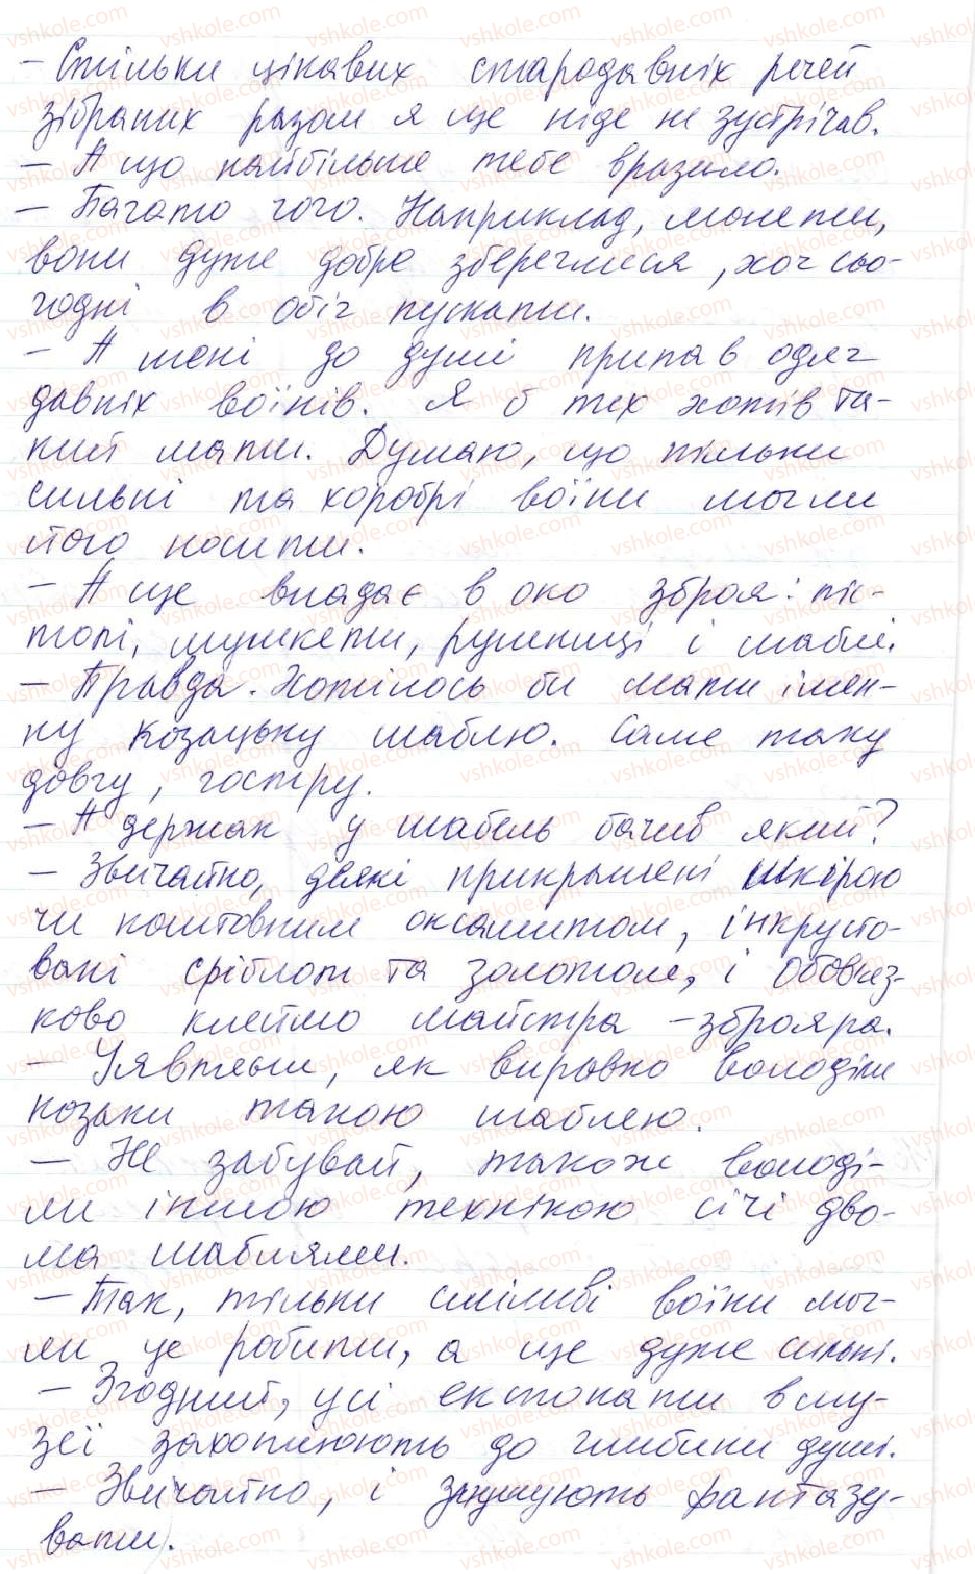 - Стільки цікавих стародавніх речей
зібраних разом я ще ніде не зустрічав.
- А що найбільше тебе вразило.
- Багато чого. Наприклад, монети,
вони дуже добре збереглися, хоч сьо-
годні в обіг пускати.
- А мені до душі припав одяг
давніх воїнів. Я б теж хотів та-
кий мати. Думаю, що тільки
сильні та хоробрі воїни могли
його носити.
- А ще впадає в око зброя: піс-
толі, мушкети, рушниці і шаблі.
- Правда. Хотілось би мати імен-
ну козацьку шаблю. Саме таку
довгу, гостру.
- А держак у шабель бачив який?
- Звичайно, деякі прикрашені шкірою
чи коштовним оксамитом, інкрусто-
вані сріблом та золотом, і обовяз-
ково клеймо майстра - зброяра.
- Уявляєш, як вправно володіли
козаки такою шаблею.
- Не забувай, також володі-
ли іншою технікою січі дво-
ма шаблями.
- Так, тільки сміливі воїни мог-
ли це робити, а ще дуже сильні.
- Згодний, усі експонати в му-
зеї захоплюють до глибини душі.
- Звичайно, і змушують фантазу-
вати.
vshkole.com